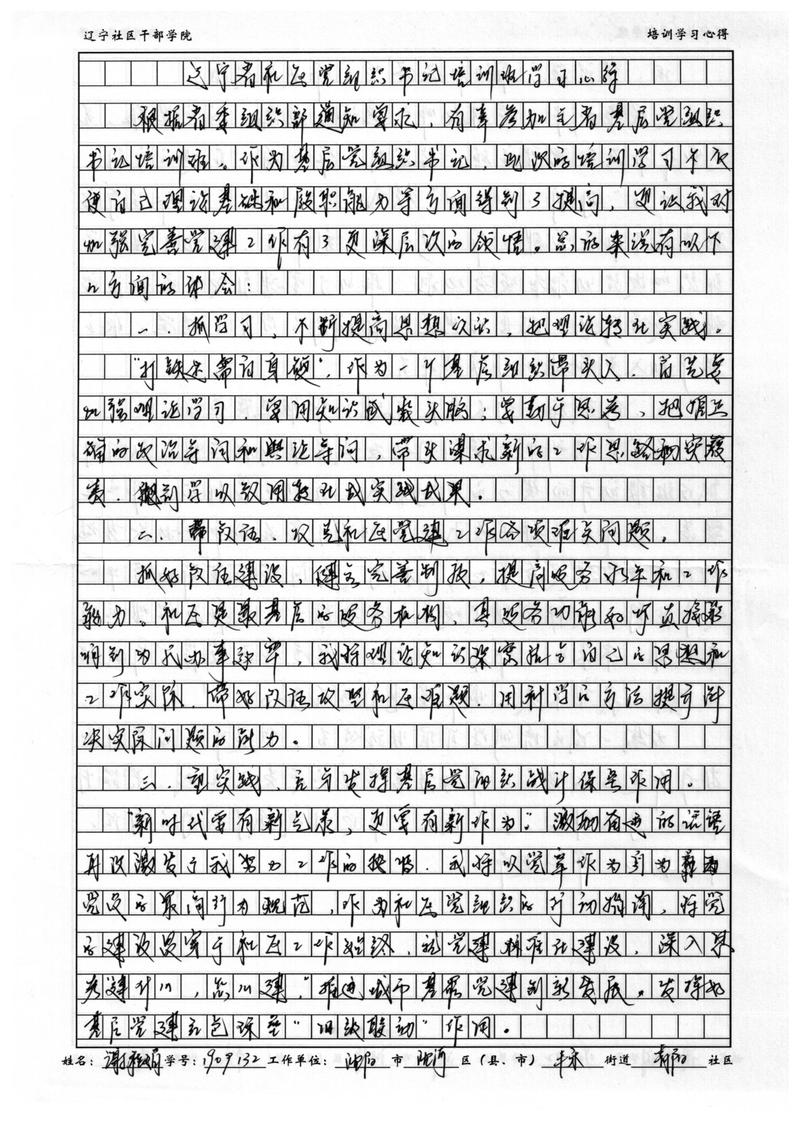 辽宁社区干部学院 培训学习心得
辽宁省社区党组织书记培训班学习心得
根据省委组织部通知要求,有幸参加全省基层党组织
书记培训班。作为基层党组织书记,此次的培训学习不仅
使自己理论基础和履职能力等方面得到了提高,更让我对
加强完善党建工作有了更深层次的领悟。总的来说有以下
几方面的体会:
一、抓学习,不断提高思想认识,把理论转化实践。
"打铁还需自身硬",作为一个基层组织带头人,首先要
加强理论学习,要用知识武装头脑;要勤于思考,把握正
确的政治导向和舆论导向,带头谋求新的工作思路和实
,做到学以致用转化成实践成果。
二、带队伍,攻克社区党建工作各项难关问题。
抓好队伍建设,健全完善制度,提高服务水平和工作
能力。社区是最基层的服务机构,其服务功能的好直接影
响到为民办事效率,我将理论知识深结合自己的思想和
工作实际,带好队伍攻坚社区难题,用科学的方法提升解
决实际问题的能力。
三、重实践,充分发挥基层党组织战斗堡垒作用。
"新时代要有新气象,更要有新作为。"激励奋进的话语
再次激发了我努力工作的热情,我将以党章作为身为
党员的最高行为规范,作为社区党组织的行动指南,将党
的建设贯穿于社区工作始终,抓党建标准化建设,深入思
考建什么,怎么建,推进城市基层党建创新发展。发挥好
基层党建"四级联动"作用。
姓名: 学号:1909132 工作单位: 沈阳 市 沈河 区(县、市) 丰乐 街道 社区